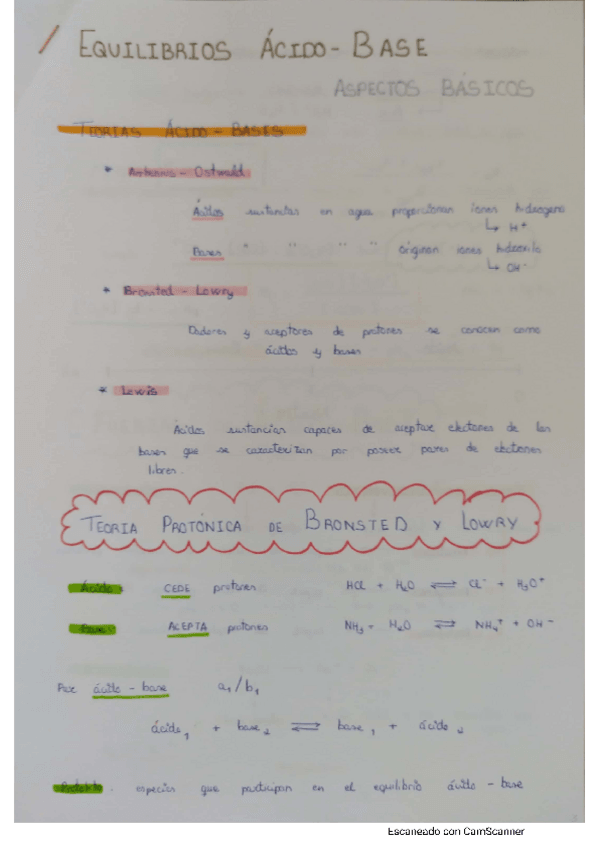 EQUILIBRIOS ÁCIDO - BASE
ASPECTOS BÁSICOS
TEORIAS ÁCIDO - BASES
* Arrhenius - Ostwald
Ácidos sustancias en agua proporcionan iones hidrogeno
↳ H⁺
Bases " " " " originan iones hidroxilo
↳ OH⁻
* Bronsted - Lowry
Dadores y aceptores de protones se conocen como
ácidos y bases
* Lewis
Ácidos sustancias capaces de aceptar electrones de las
bases que se caracterizan por poseer pares de electrones
libres.
TEORIA PROTÓNICA DE BRONSTED Y LOWRY
Ácido: CEDE protones HCl + H₂O ⇌ Cl⁻ + H₃O⁺
Base: ACEPTA protones NH₃ + H₂O ⇌ NH₄⁺ + OH⁻
Par ácido - base a₁/b₁
ácido₁ + base₂ ⇌ base₁ + ácido₂
Protolito: especies que participan en el equilibrio ácido - base
Escaneado con CamScanner